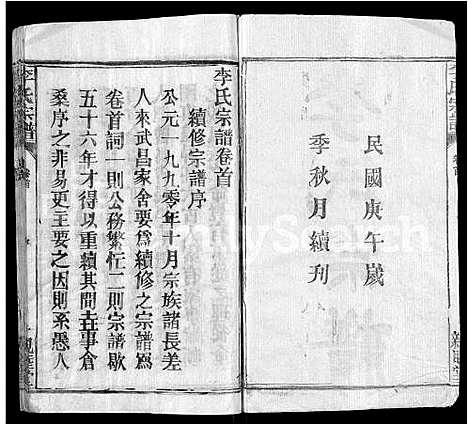 民國庚午歲
季秋月續刊
李氏宗譜卷首
續修宗譜序
公元一九九零年十月宗族諸長差
人來武昌家舍要爲續修之宗譜爲
卷首詞一則公務繁忙二則宗譜歇
五十六年才得以重續其間
桑序之非易更主要之因則系愚人
李氏宗譜